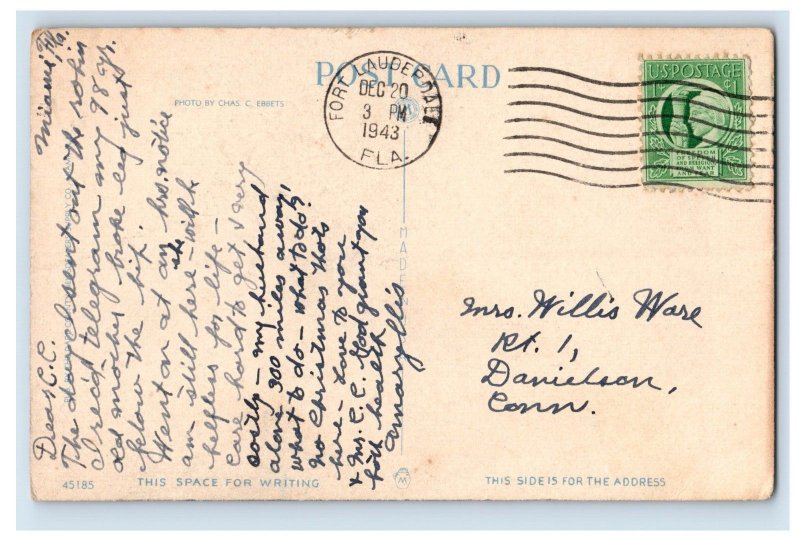 POST CARD
PHOTO BY CHAS. C. EBBETS
FORT LAUDERDALE
DEC 20
3 PM
1943
FLA.
U.S. POSTAGE
1¢
FREEDOM
OF SPEECH
AND RELIGION
FROM WANT
AND FEAR
Miami, Fla.
Dear C.C.
The day I sent out the robin
I rec'd telegram my 78 yr.
old mother broke leg just
below the hip.
Went on at an hrs. notice
am still here - she will be
helpless for life -
care hard to get & very
costly - my husband
alone 300 miles away,
what to do - what to do?
no Christmas thots
here - Love to you
& Mr. C.C. God grant you
both health
Amaryllis
MADE
Mrs. Willis Ware
Rt. 1,
Danielson,
Conn.
45185
THIS SPACE FOR WRITING
THIS SIDE IS FOR THE ADDRESS